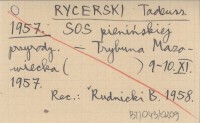 RYCERSKI Tadeusz
1957. SOS pienińskiej
przyrody. – Trybuna Mazo-
wiecka ( ) 9-10.XI.
1957.
Rec.: Rudnicki B. 1958.